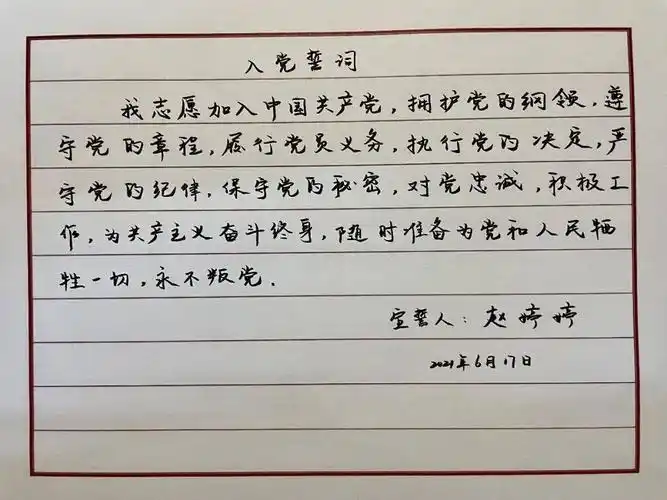 入党誓词
我志愿加入中国共产党，拥护党的纲领，遵
守党的章程，履行党员义务，执行党的决定，严
守党的纪律，保守党的秘密，对党忠诚，积极工
作，为共产主义奋斗终身，随时准备为党和人民牺
牲一切，永不叛党.
宣誓人：赵婷婷
2021年6月17日